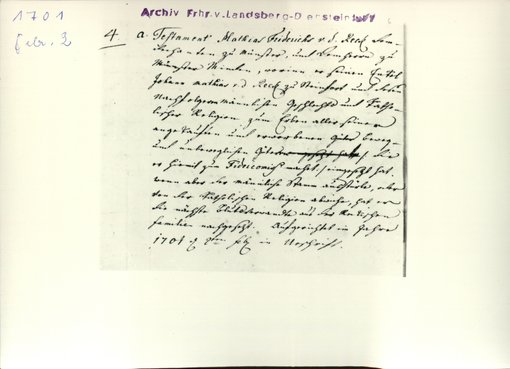 1701
Febr. 2
Archiv Frhr.v.Landsberg-D
4. a. Testament Mathias Friderichs v. d. Reck Dom-
Dechanten zu Münster, und Domherrn zu
Münster Minden, worinn er seinen Enkel
Johann Mathias v. d. Reck zu Steinfort und dessen
Nachfolgern männlichen Geschlechts und Katho-
lischer Religion zum Erben aller seinen
angekauften und erworbenen Güter beweg-
und unbeweglichen Güter die
er hiemit zu Fideicomiss macht / eingesetzt hat,
wenn aber der männliche Stamm ausstürbe, oder
von der Katholischen Religion abwiche, hat er
die nächste Blutsverwandte aus der Reckischen
familien nachgesetzt. Aufgerichtet im Jahre
1701 d. 2ten feb. in Urschrift.